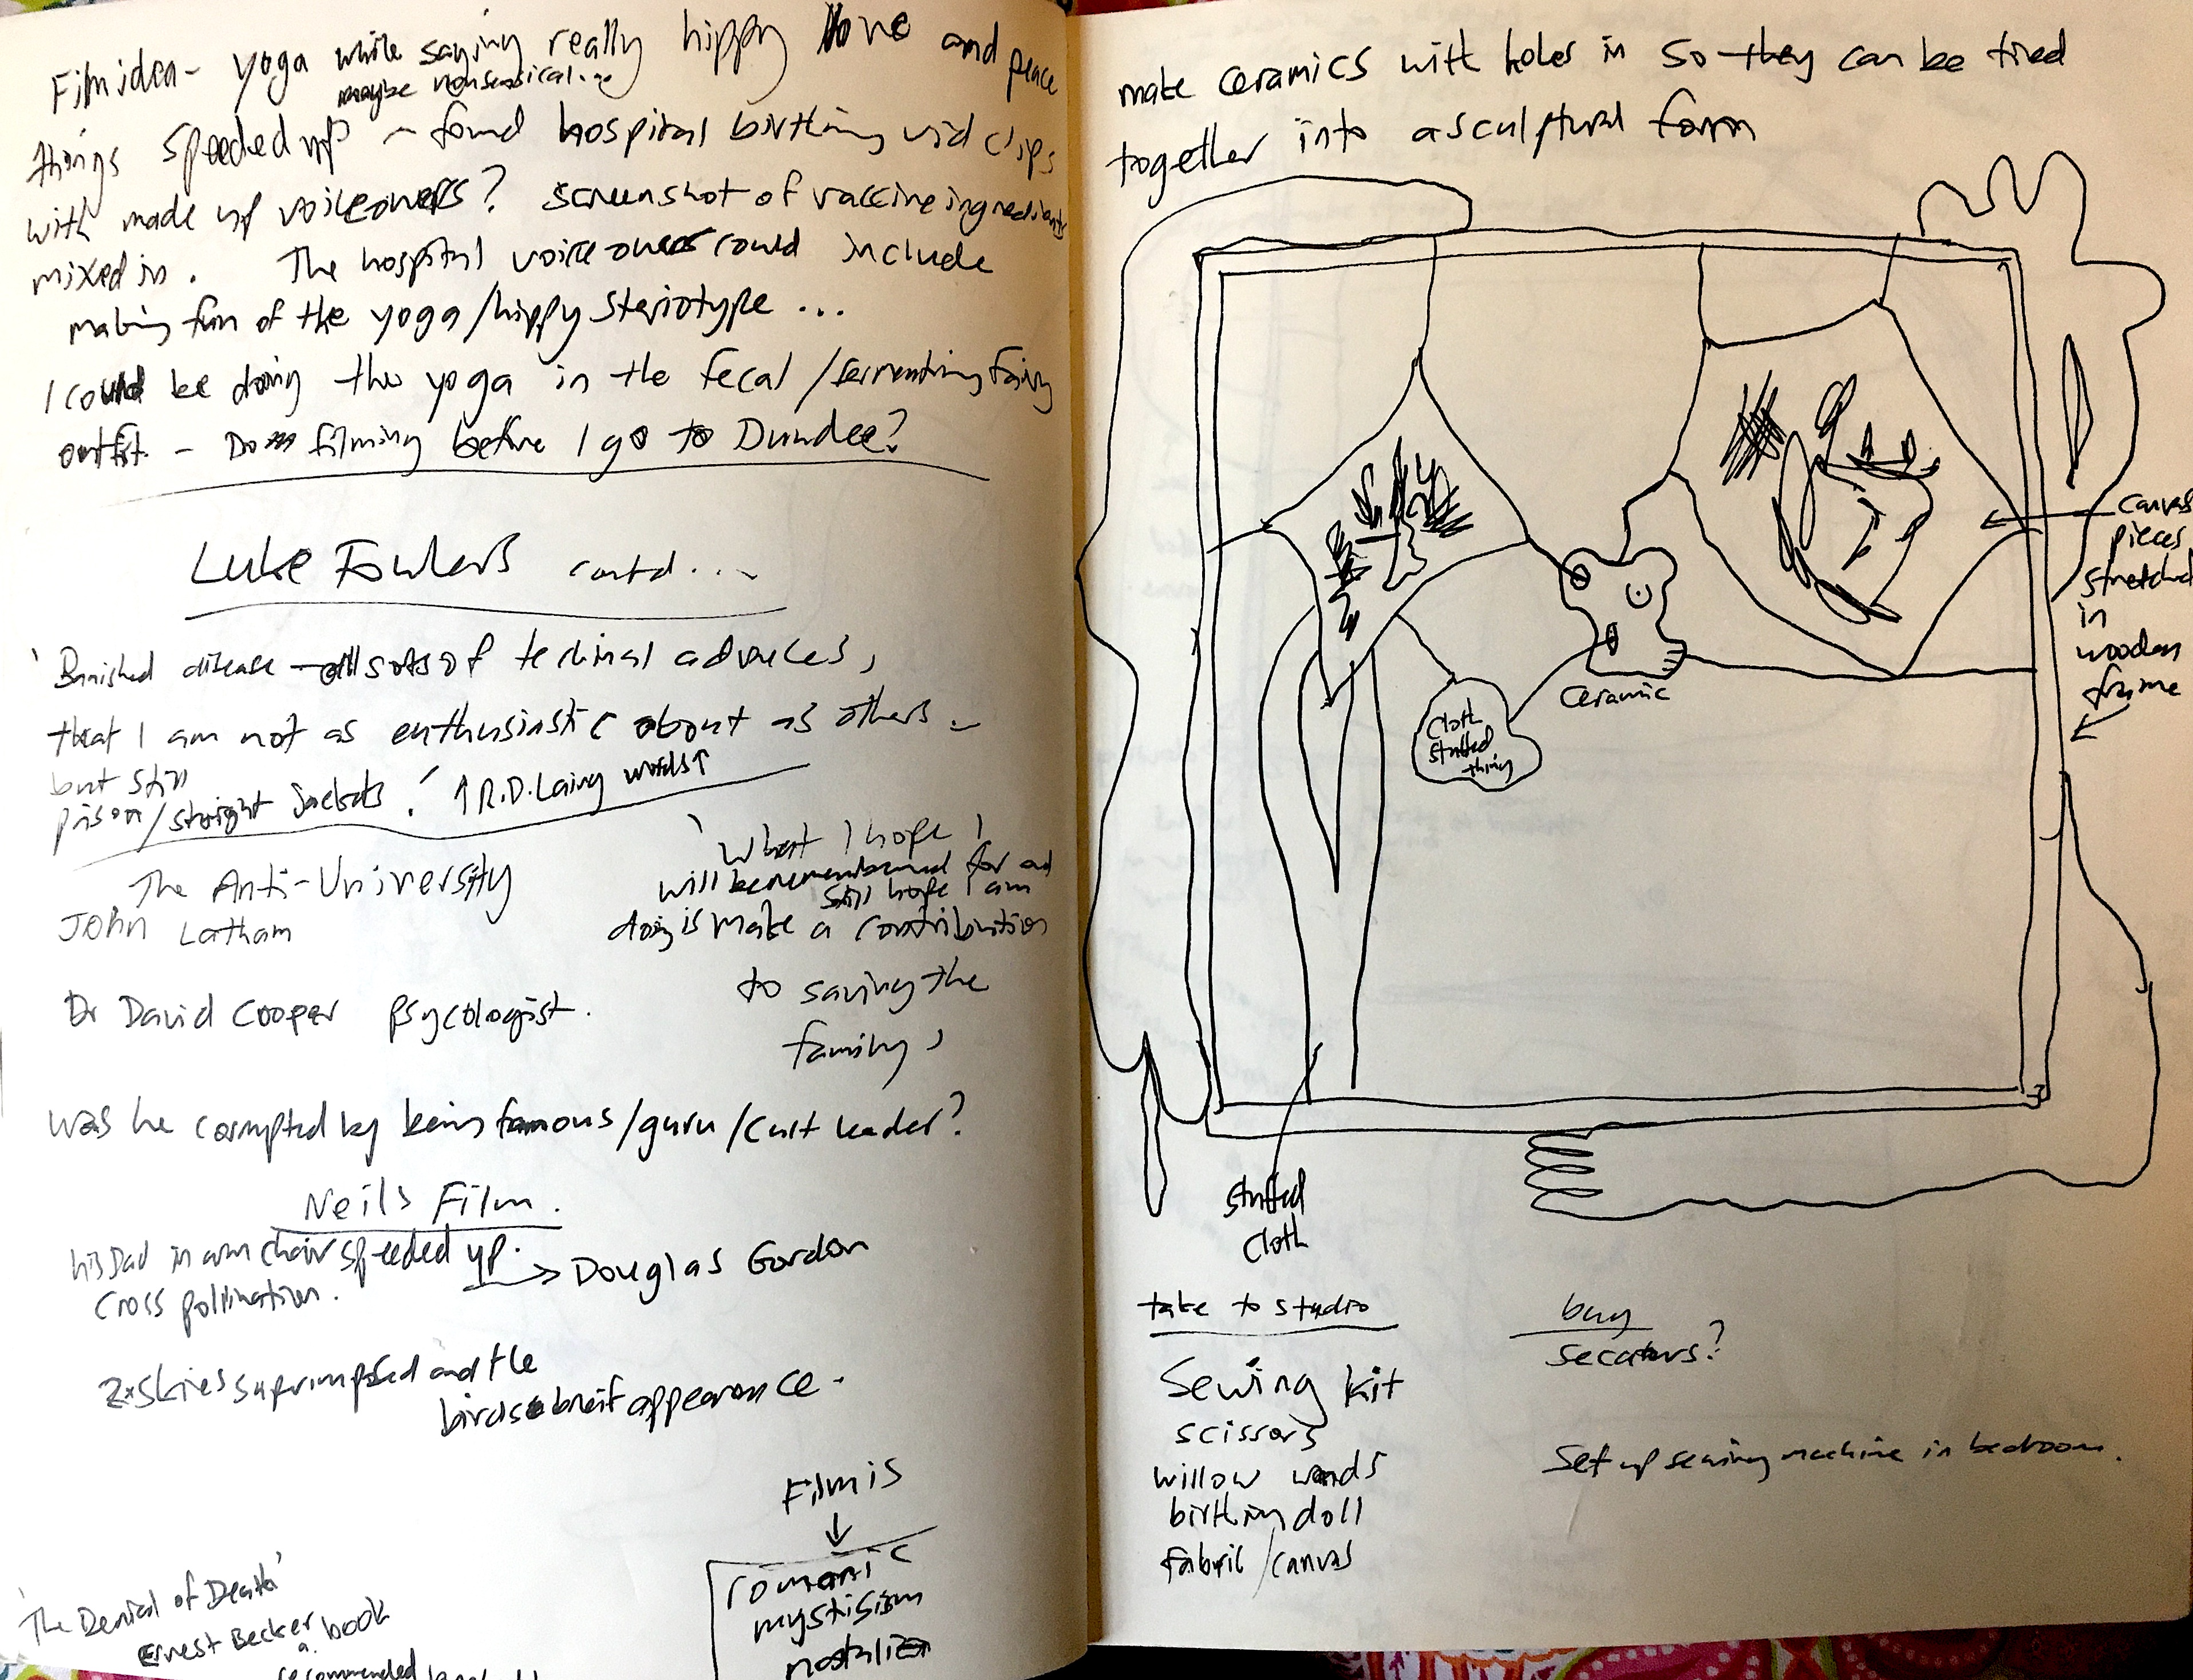 Film idea - yoga while saying really hippy love and peace
maybe nonsensical
things speeded up ~ found hospital birthing vid clips
with made up voiceovers? screenshot of vaccine ingredients
mixed in. The hospital voice overs could include
making fun of the yoga/hippy steriotype ...
I could be doing the yoga in the fecal/fermenting fairy
outfit. - Do filming before I go to Dundee?
Luke Fowlers contd...
'Banished disease - all sorts of techinal advances,
that I am not as enthusiastic about as others -
but still
prison/straight jackets.' ↑R.D. Laing words↑
The Anti-University
John Latham
'What I hope I
will be remembered for and
still hope I am
doing is make a contribution
to saving the
family'
Dr David Cooper psycologist.
was he corrupted by being famous/guru/cult leader?
Neils Film.
his Dad in arm chair speeded up.
→ Douglas Gordon
cross pollination.
2x skies suprimposed and the
birds breif appearance.
Film is
↓
romanic
mystisism
'The Denial of Death'
Ernest Becker
a book
recommended
make ceramics with holes in so they can be tied
together into a sculptural form
canvas
pieces
stretched
in
wooden
frame
Ceramic
Cloth
stuffed
thing
stuffed
cloth
take to studio
Sewing kit
scissors
willow wands
birthing doll
fabric/canvas
buy
secaturs?
Set up sewing machine in bedroom.